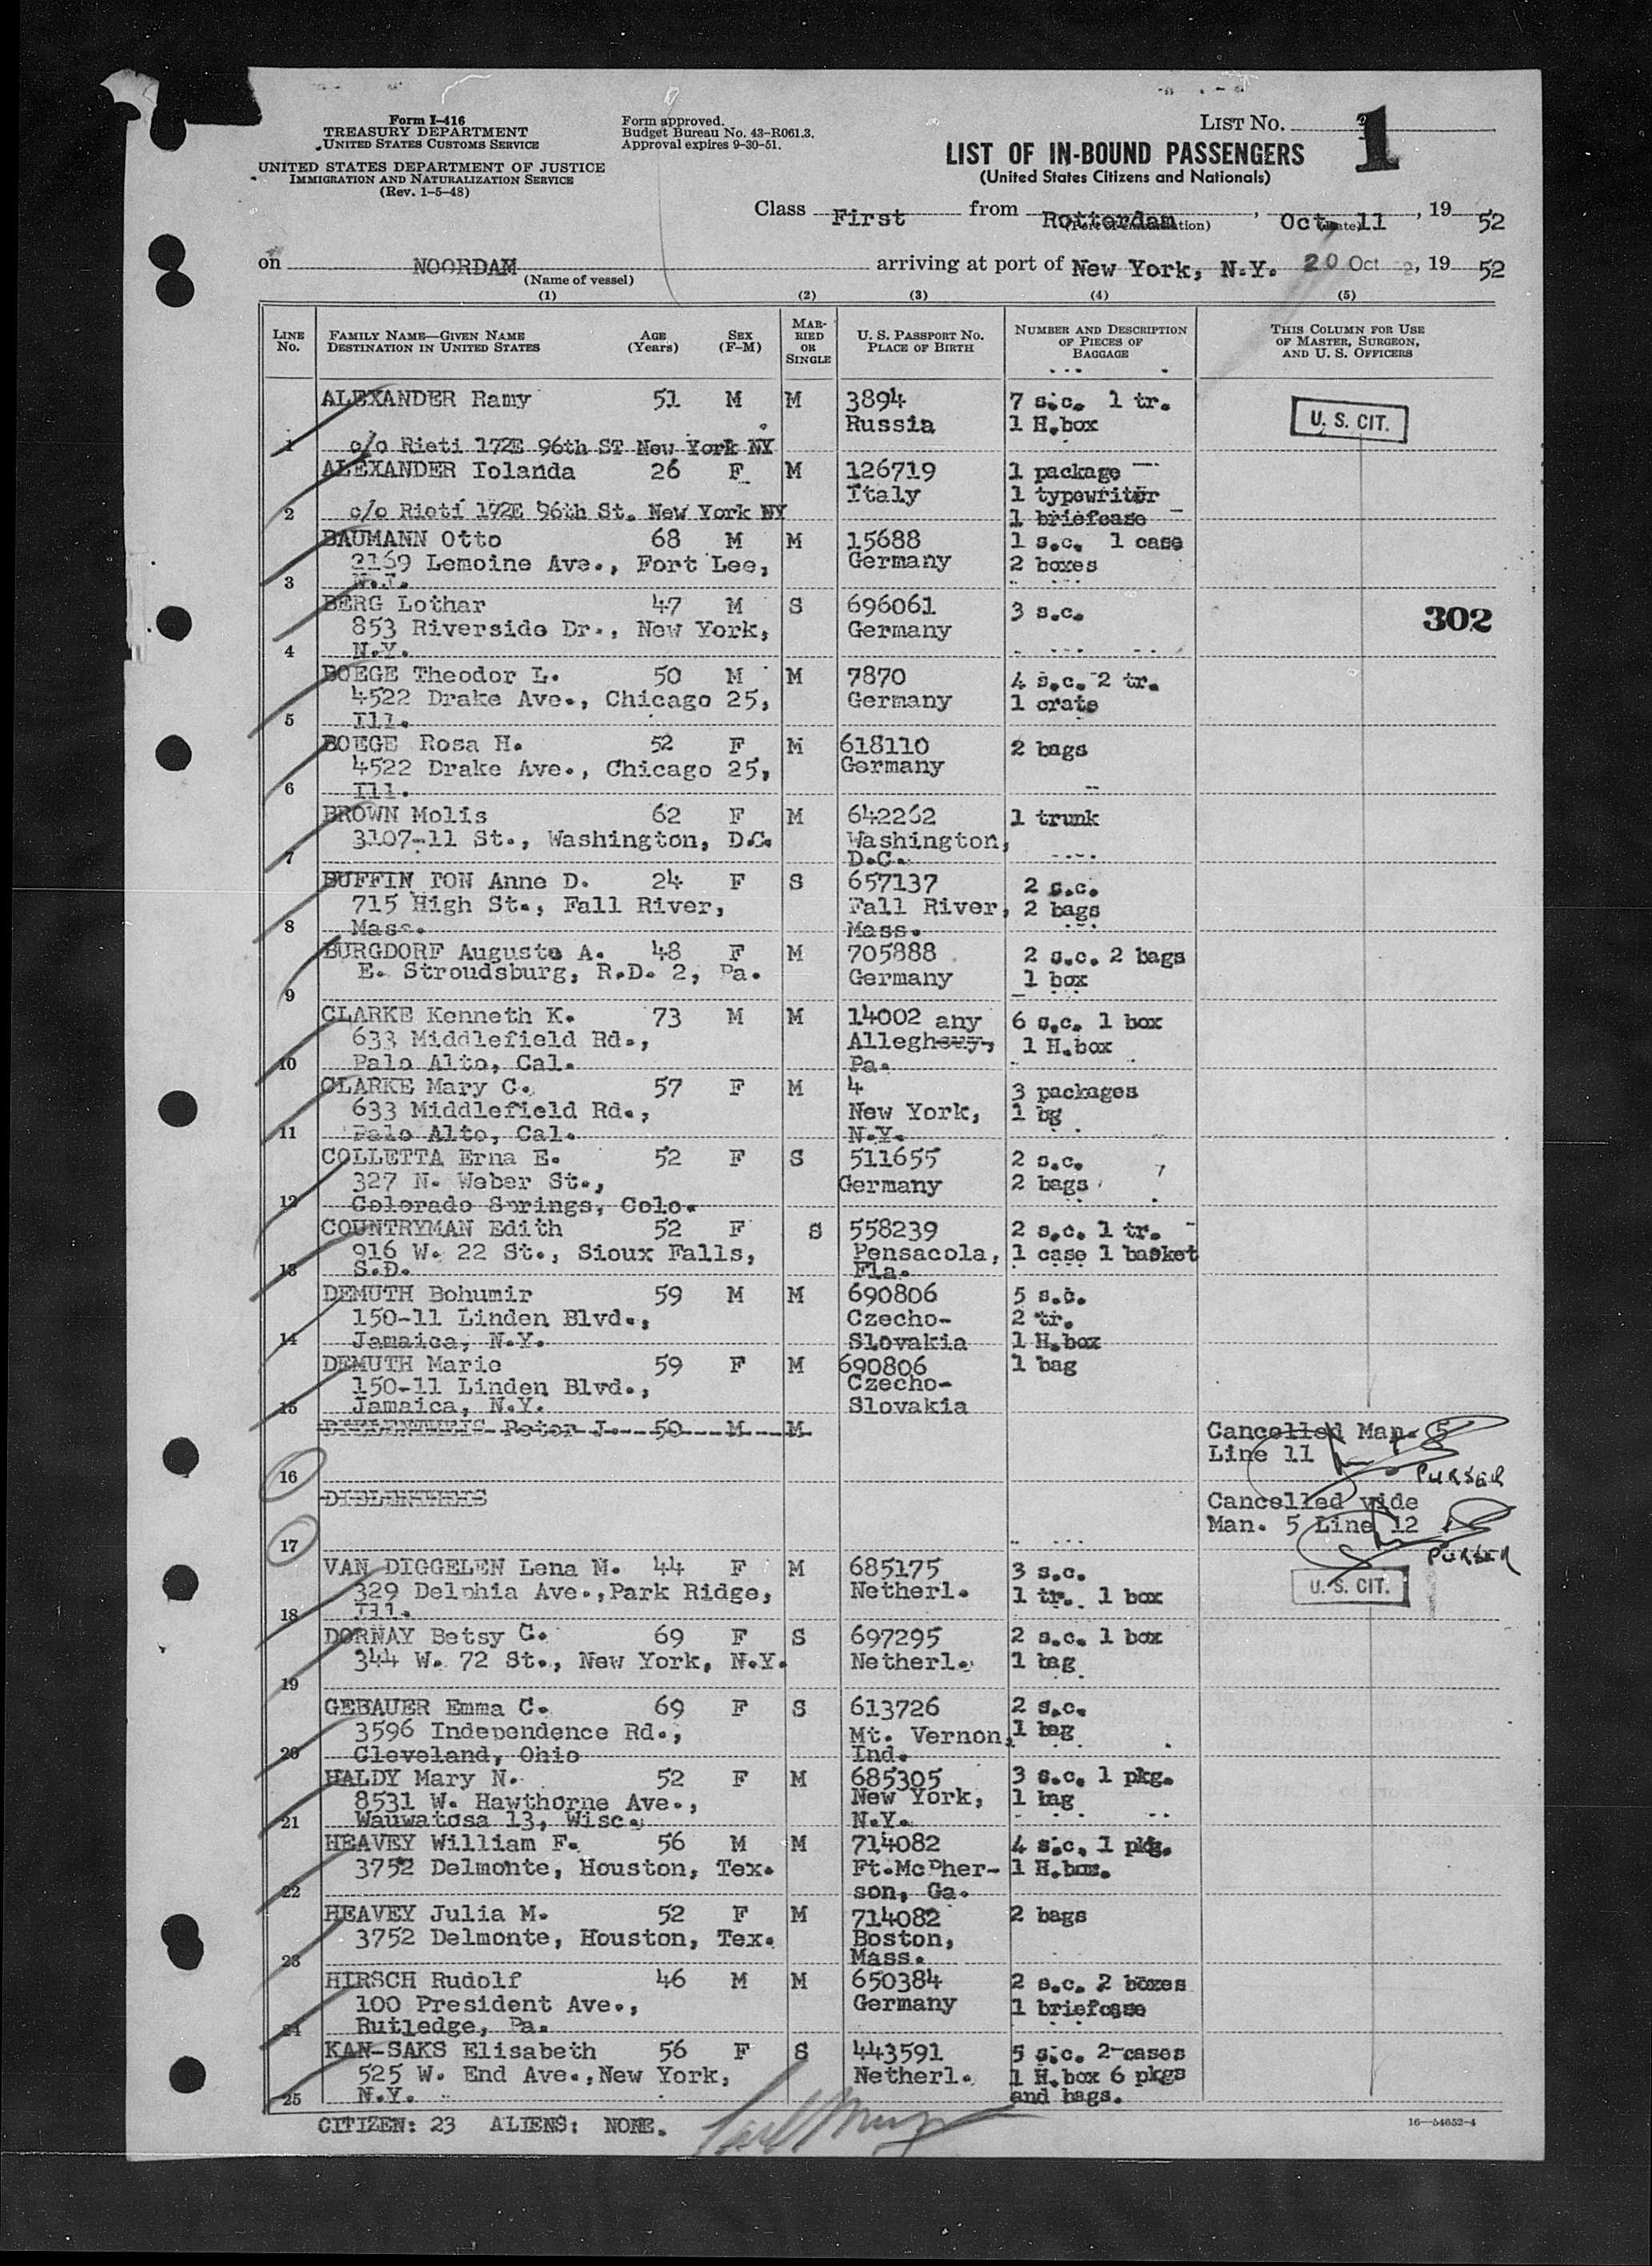 Form I-416
TREASURY DEPARTMENT
UNITED STATES CUSTOMS SERVICE
UNITED STATES DEPARTMENT OF JUSTICE
IMMIGRATION AND NATURALIZATION SERVICE
(Rev. 1-5-48)
Form approved.
Budget Bureau No. 43-R061.3.
Approval expires 9-30-51.
LIST No. 1
LIST OF IN-BOUND PASSENGERS
(United States Citizens and Nationals)
Class First from Rotterdam, Oct. 11, 19 52
(Port of embarkation) (Date)
on NOORDAM arriving at port of New York, N.Y. 20 Oct, 19 52
(Name of vessel)
(1) (2) (3) (4) (5)
LINE No. FAMILY NAME—GIVEN NAME DESTINATION IN UNITED STATES AGE (Years) SEX (F-M) MARRIED OR SINGLE U. S. PASSPORT NO. PLACE OF BIRTH NUMBER AND DESCRIPTION OF PIECES OF BAGGAGE THIS COLUMN FOR USE OF MASTER, SURGEON, AND U. S. OFFICERS
ALEXANDER Ramy 51 M M 3894 7 s.c. 1 tr.
Russia 1 H.box U. S. CIT.
1 c/o Rieti 172E 96th ST New York NY
ALEXANDER Iolanda 26 F M 126719 1 package
Italy 1 typewriter
2 c/o Rieti 172E 96th St. New York NY 1 briefcase
BAUMANN Otto 68 M M 15688 1 s.c. 1 case
2169 Lemoine Ave., Fort Lee, Germany 2 boxes
3 N.J.
BERG Lothar 47 M S 696061 3 s.c. 302
853 Riverside Dr., New York, Germany
4 N.Y.
BOEGE Theodor L. 50 M M 7870 4 s.c. 2 tr.
4522 Drake Ave., Chicago 25, Germany 1 crate
5 Ill.
BOEGE Rosa H. 52 F M 618110 2 bags
4522 Drake Ave., Chicago 25, Germany
6 Ill.
BROWN Molis 62 F M 642262 1 trunk
3107-11 St., Washington, D.C. Washington,
7 D.C.
BUFFIN TON Anne D. 24 F S 657137 2 s.c.
715 High St., Fall River, Fall River, 2 bags
8 Mass. Mass.
BURGDORF Auguste A. 48 F M 705888 2 s.c. 2 bags
E. Stroudsburg, R.D. 2, Pa. Germany 1 box
9
CLARKE Kenneth K. 73 M M 14002 any 6 s.c. 1 box
633 Middlefield Rd., Allegheny, 1 H.box
10 Palo Alto, Cal. Pa.
CLARKE Mary C. 57 F M 4 3 packages
633 Middlefield Rd., New York, 1 bg
11 Palo Alto, Cal. N.Y.
COLLETTA Erna E. 52 F S 511655 2 s.c.
327 N. Weber St., Germany 2 bags
12 Colorado Springs, Colo.
COUNTRYMAN Edith 52 F S 558239 2 s.c. 1 tr.
916 W. 22 St., Sioux Falls, Pensacola, 1 case 1 basket
13 S.D. Fla.
DEMUTH Bohumir 59 M M 690806 5 s.c.
150-11 Linden Blvd., Czecho- 2 tr.
14 Jamaica, N.Y. Slovakia 1 H.box
DEMUTH Marie 59 F M 690806 1 bag
150-11 Linden Blvd., Czecho-
15 Jamaica, N.Y. Slovakia
Peter J. 50 M M Cancelled Man. 5
Line 11
16 PURSER
Cancelled vide
Man. 5 Line 12
17 PURSER
VAN DIGGELEN Lena M. 44 F M 685175 3 s.c.
329 Delphia Ave.,Park Ridge, Netherl. 1 tr. 1 box U. S. CIT.
18 Ill.
DORNAY Betsy C. 69 F S 697295 2 s.c. 1 box
344 W. 72 St., New York, N.Y. Netherl. 1 bag
19
GEBAUER Emma C. 69 F S 613726 2 s.c.
3596 Independence Rd., Mt. Vernon, 1 bag
20 Cleveland, Ohio Ind.
HALDY Mary N. 52 F M 685305 3 s.c. 1 pkg.
8531 W. Hawthorne Ave., New York, 1 bag
21 Wauwatosa 13, Wisc. N.Y.
HEAVEY William F. 56 M M 714082 4 s.c. 1 pkg.
3752 Delmonte, Houston, Tex. Ft.McPher- 1 H.box.
22 son, Ga.
HEAVEY Julia M. 52 F M 714082 2 bags
3752 Delmonte, Houston, Tex. Boston,
23 Mass.
HIRSCH Rudolf 46 M M 650384 2 s.c. 2 boxes
100 President Ave., Germany 1 briefcase
24 Rutledge, Pa.
KAN-SAKS Elisabeth 56 F S 443591 5 s.c. 2 cases
525 W. End Ave.,New York, Netherl. 1 H.box 6 pkgs
25 N.Y. and bags.
CITIZEN: 23 ALIENS: NONE.
16—54652-4